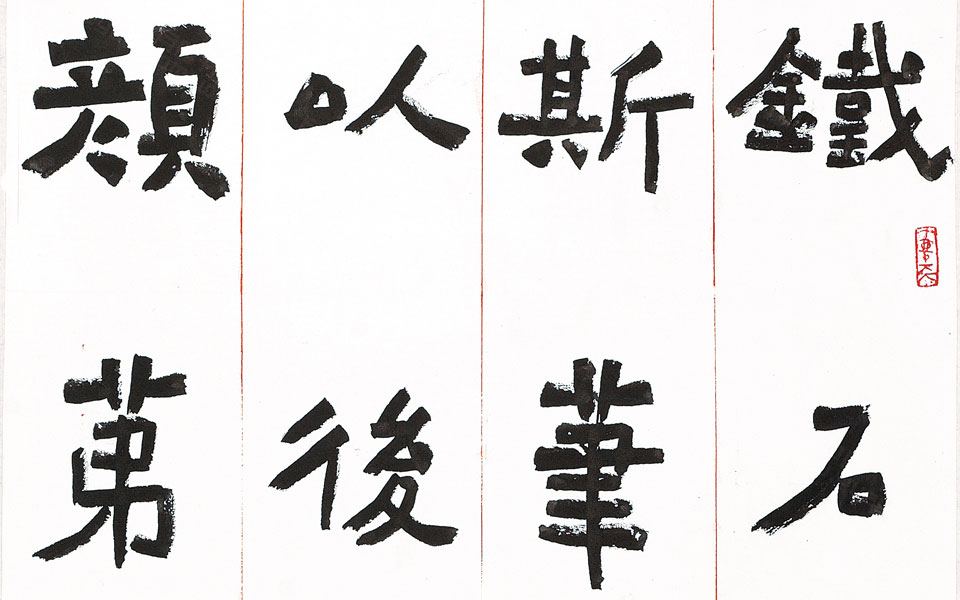 鐵石
斯筆
以後
顏第